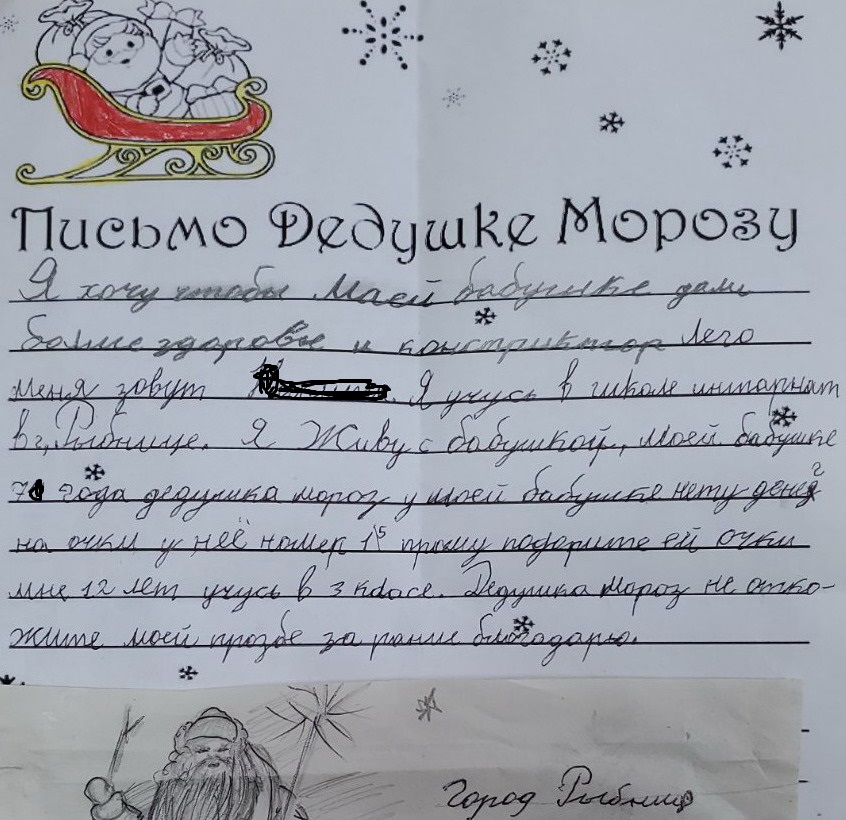 Письмо Дедушке Морозу
Я хочу чтобы Маей бабушке дали
болше здоровье и констриктор Лего
меня зовут Я учусь в школе интарнат
в г. Рыбнице. Я Живу с бабушкой, моей бабушке
71 года дедушка мороз у моей бабушке нету денег
на очки у неё номер 1,5 прошу подорите ей очки
мне 12 лет учусь в 3 класе. Дедушка Мороз не отко-
жите моей прозбе за рание благодарю.
Город Рыбница